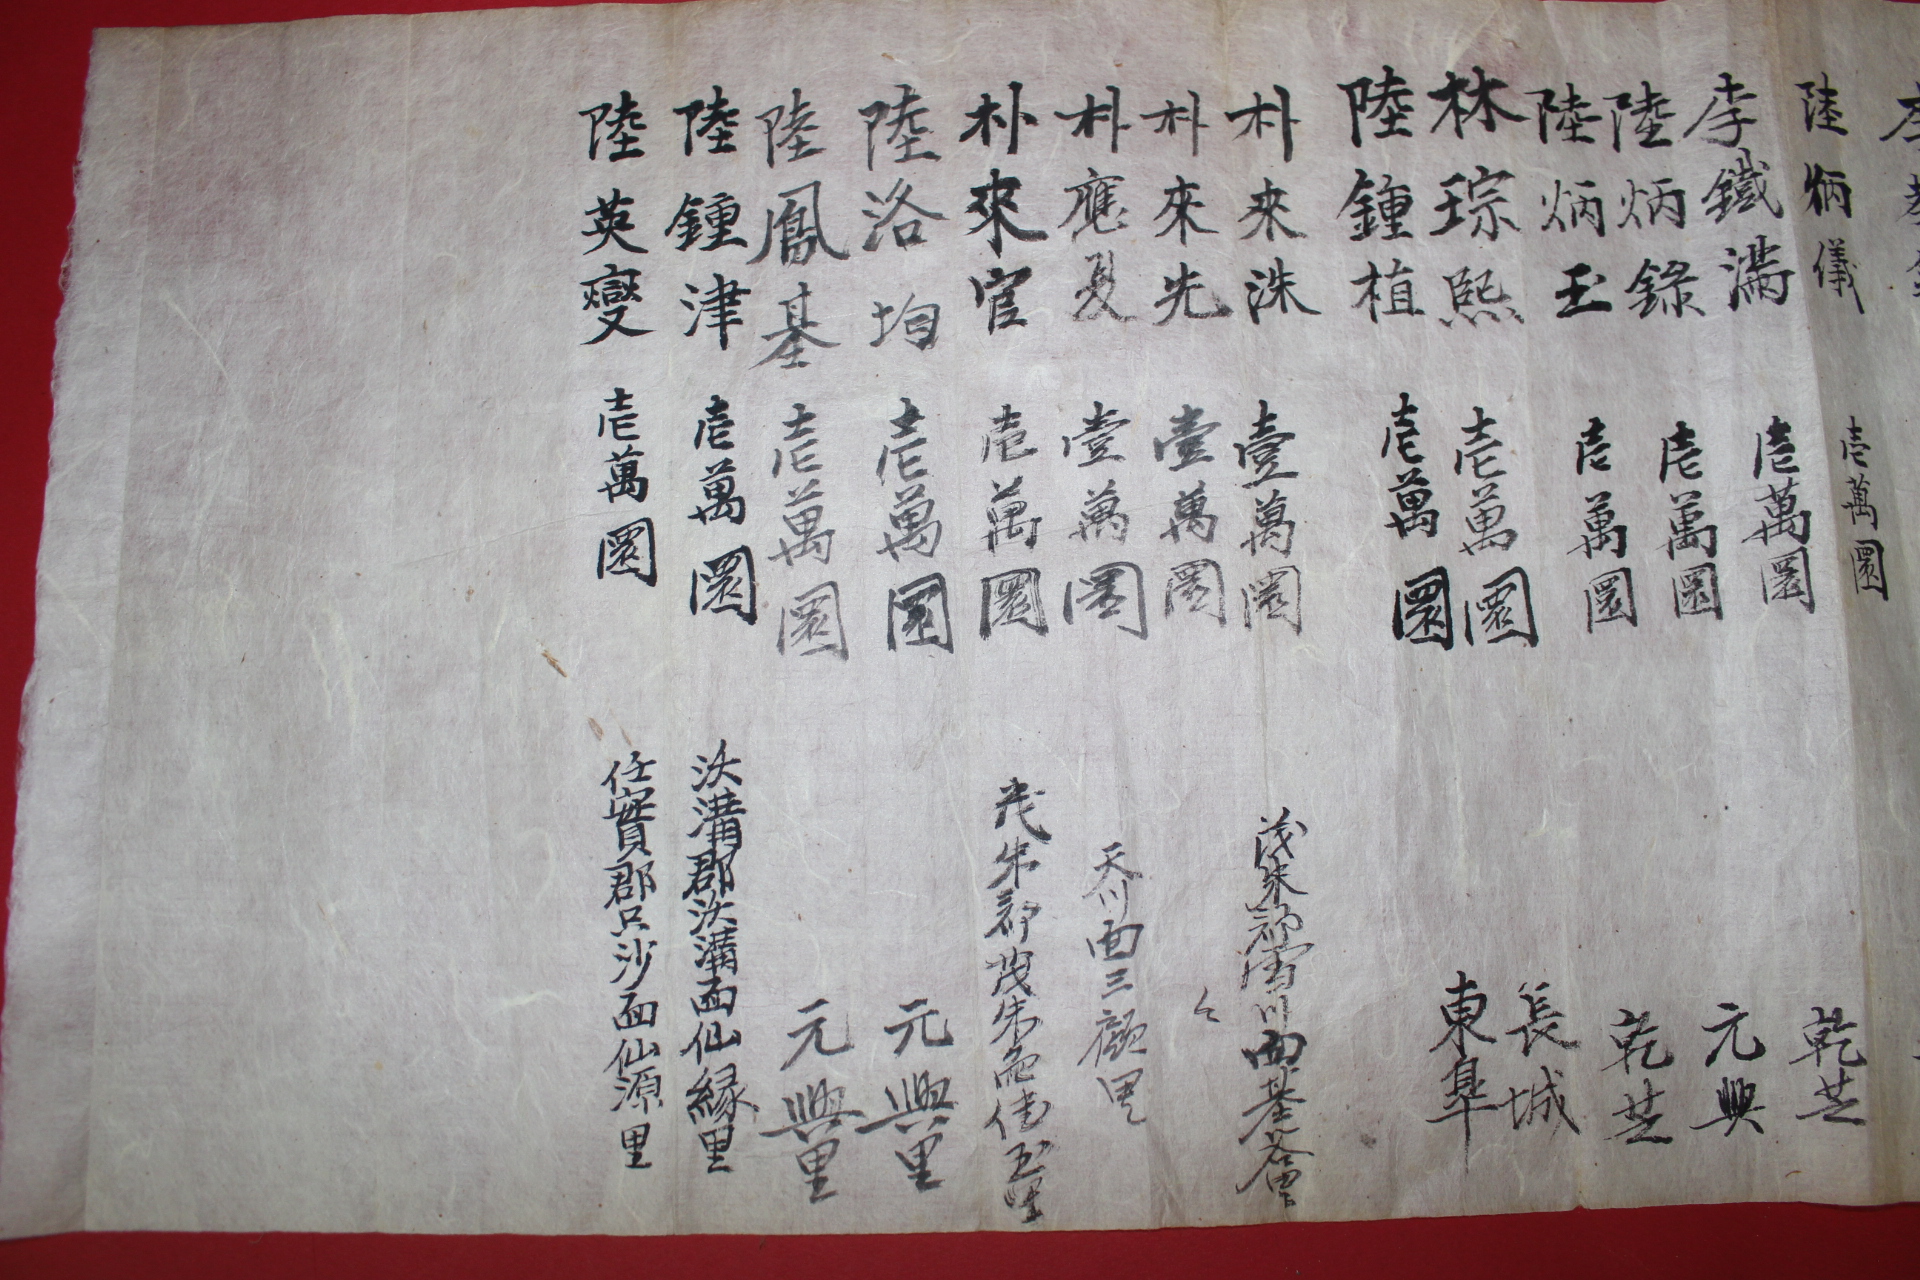 李
陸炳儀 壱萬圜 乾芝
李鐵満 壱萬圜 元興
陸炳錄 壱萬圜 乾芝
陸炳玉 壱萬圜
林琮熙 壱萬圜 長城
陸鍾植 壱萬圜 東皐
朴來洙 壹萬圜 茂朱郡雪川面基谷里
朴來先 壹萬圜
朴應夏 壹萬圜 天川面三顔里
朴來官 壱萬圜 茂朱郡茂朱面佳玉里
陸洛均 壱萬圜 元興里
陸鳳基 壱萬圜 元興里
陸鍾津 壱萬圜 沃溝郡沃溝面仙緣里
陸英燮 壱萬圜 任實郡只沙面仙源里